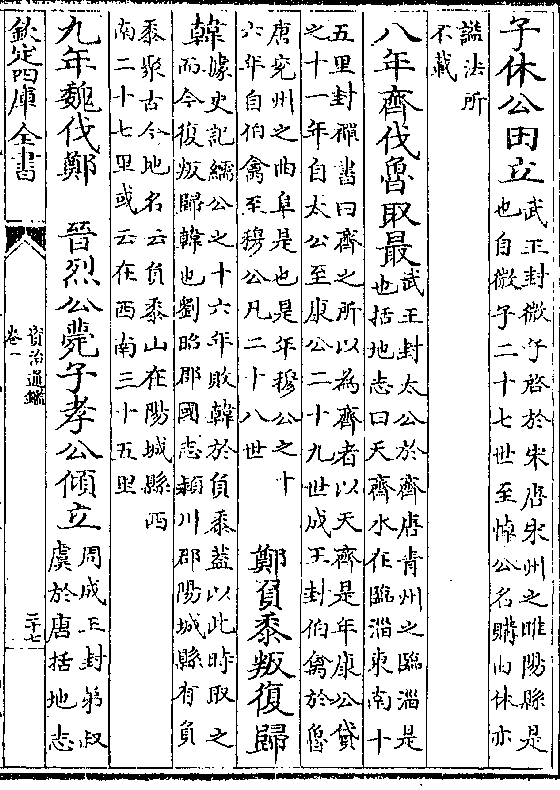 子休公田立武王封微子啓於宋唐宋州之睢陽縣是
也自微子二十七世至悼公名購由休亦
諡法所
不載
八年齊伐魯取最武王封太公於齊唐青州之臨淄是
也括地志曰天齊水在臨淄東南十
五里封禪書曰齊之所以為齊者以天齊是年康公貸
之十一年自太公至康公二十九世成王封伯禽於魯
唐兖州之曲阜是也是年穆公之十
六年自伯禽至穆公凡二十八世
鄭負黍叛復歸
韓據史記繻公之十六年敗韓於負黍蓋以此時取之
而今復叛歸韓也劉昭郡國志潁川郡陽城縣有負
黍聚古今地名云負黍山在陽城縣西
南二十七里或云在西南三十五里
九年魏伐鄭 晉烈公薨子孝公傾立周成王封弟叔
虞於唐括地志
欽定四庫全書
資治通鑑
卷一
二十七